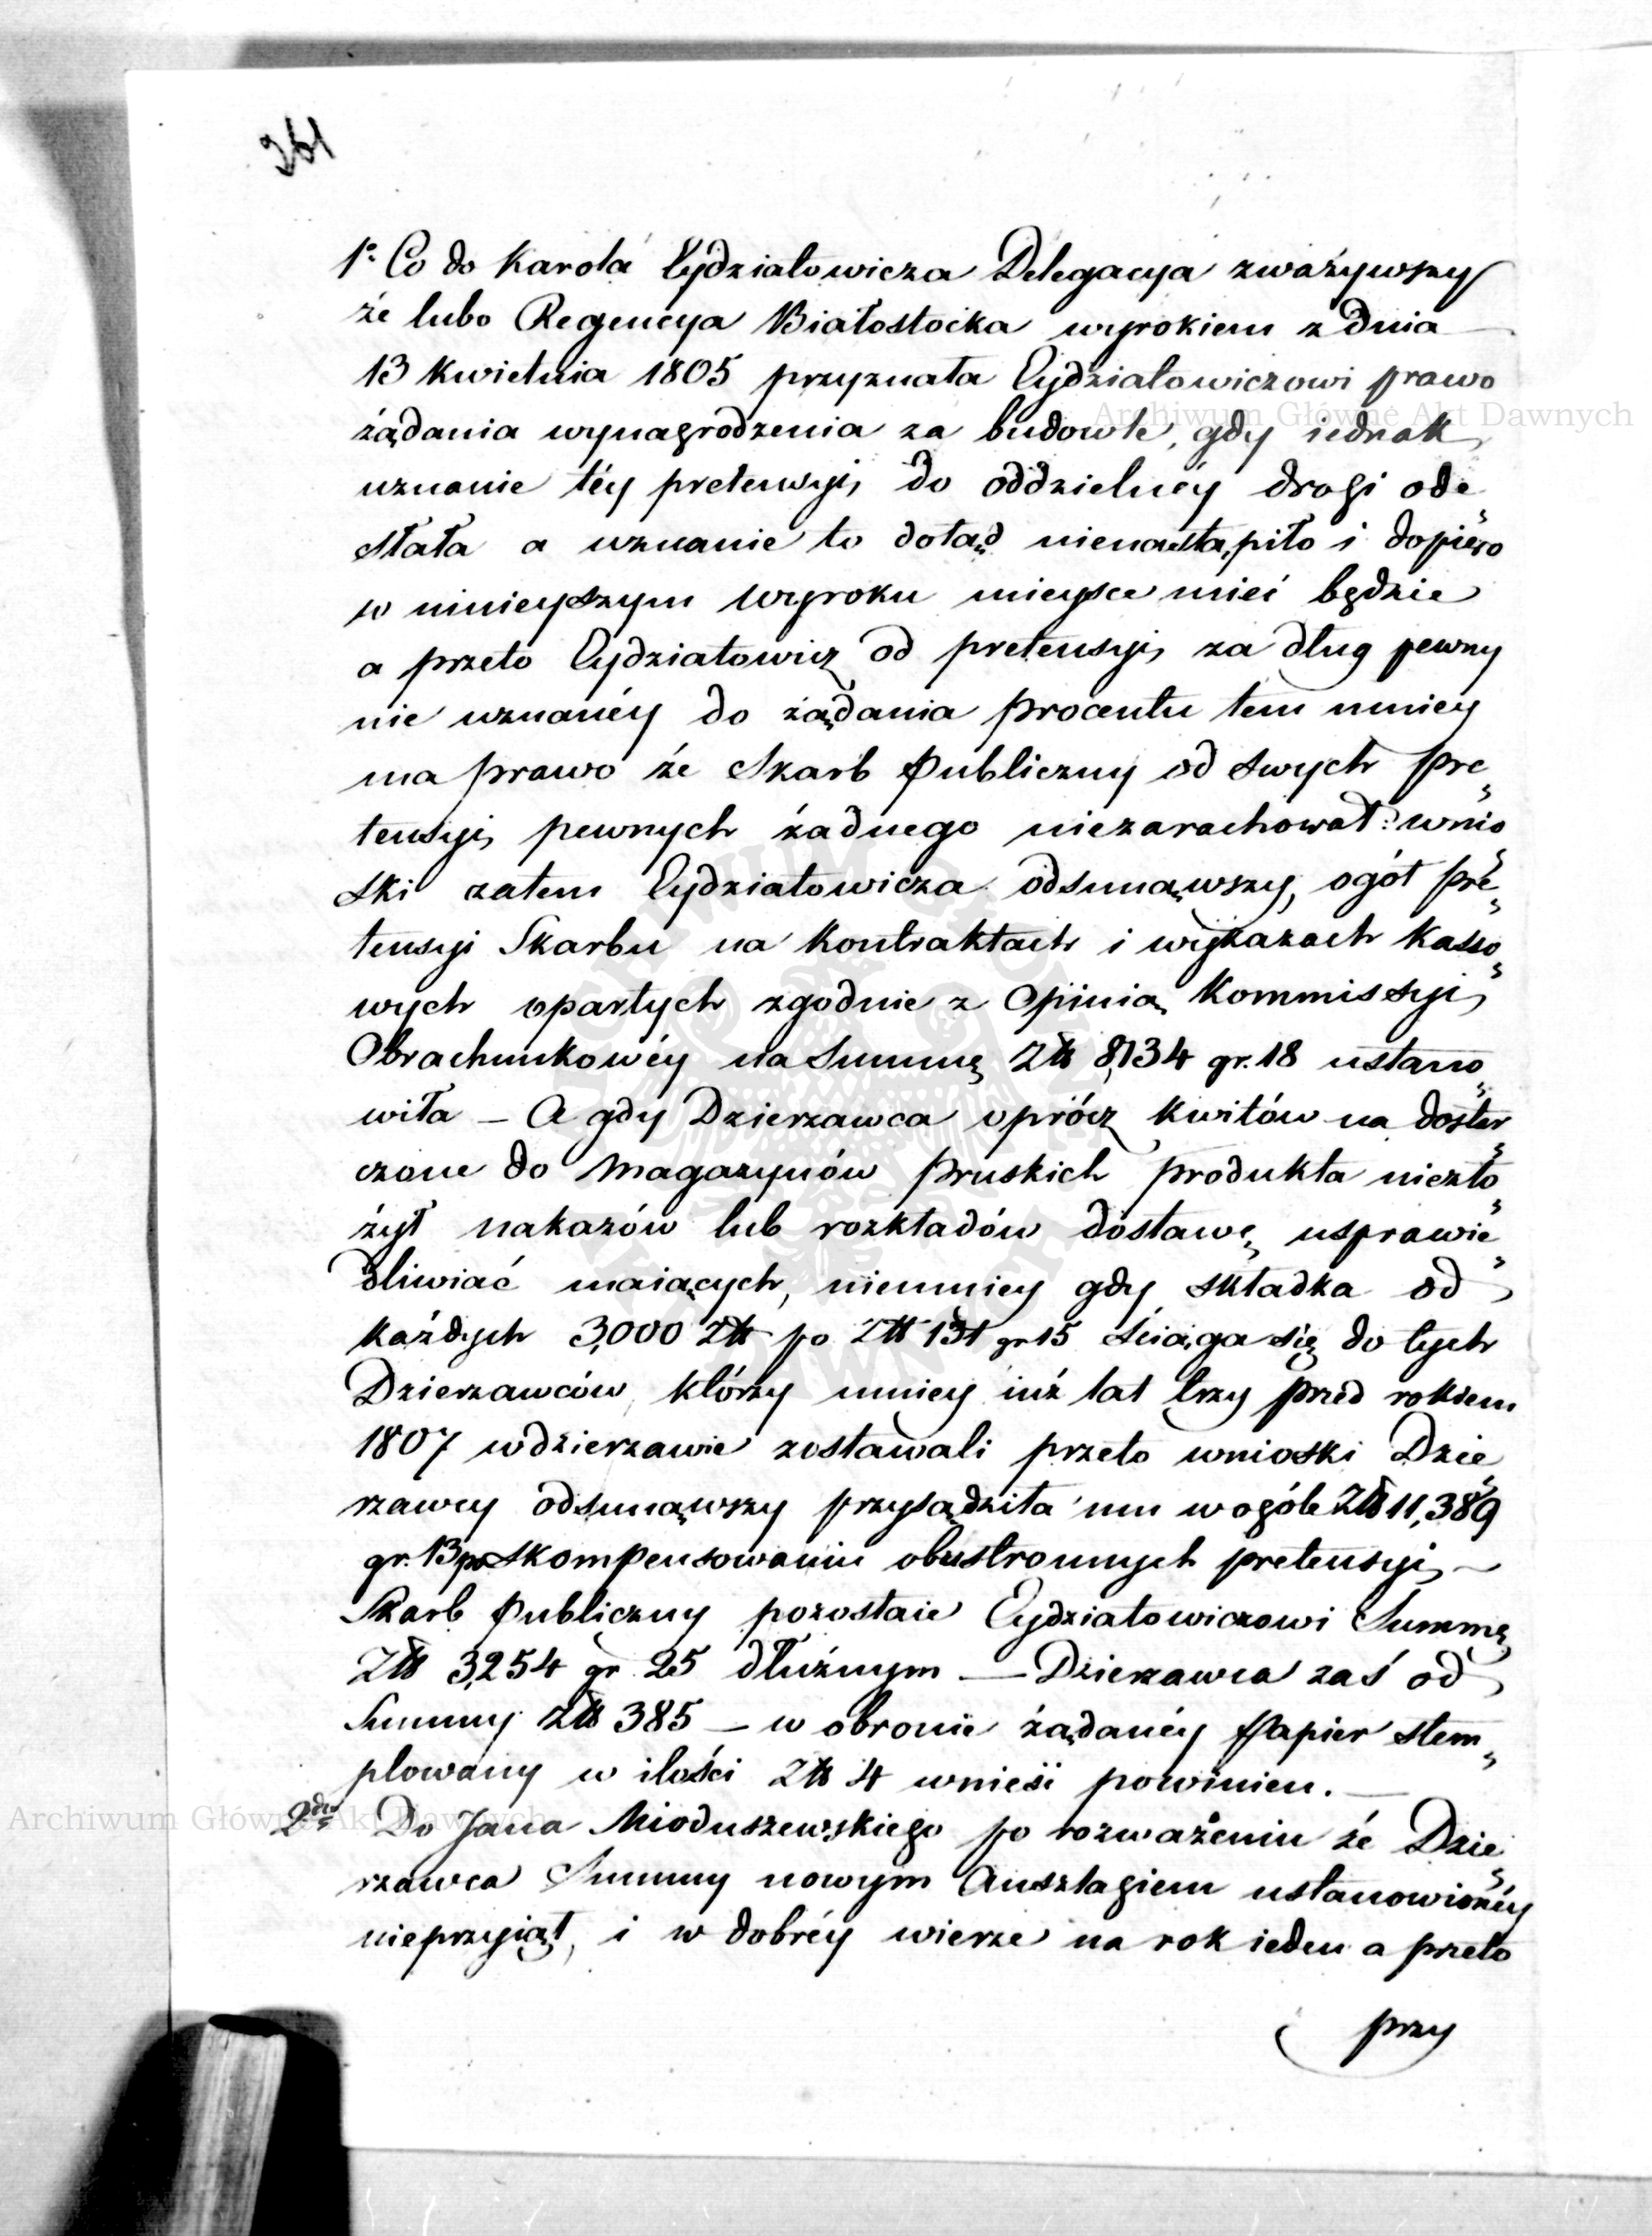 361
1º Co do Karola Eydziatowicza Delegacya zważywszy
że lubo Regencya Białostocka wyrokiem z dnia
13 Kwietnia 1805 przyznała Eydziatowiczowi prawo
żądania wynagrodzenia za budowle, gdy iednak
uznanie téy pretensyi do oddzielnéy drogi ode
słała a uznanie to dotąd nienastąpiło i dopiero
w ninieyszym Wyroku mieysce mieć będzie
a przeto Eydziatowicz od pretensyi za dług pewny
nie uznanéy do żądania procentu tem mniey
ma prawo że Skarb Publiczny od swych pre„
tensyi pewnych żadnego niezarachował: wnio„
ski zatem Eydziatowicza odsunąwszy, ogół pre„
tensyi Skarbu na Kontraktach i wykazach Kasso„
wych opartych zgodnie z Opinią Kommissyi
Obrachunkowéy na Summę Złł 8,134 gr. 18 ustano„
wiła – A gdy Dzierzawca oprócz Kwitów na dostar„
czone do Magazynów Pruskich produkta niezło„
żył nakazów lub rozkładów dostawę usprawie„
dliwiać maiących, niemniey gdy składka od
każdych 3,000 Złł po Złł 131 gr 15 ściąga się do tych
Dzierzawców którzy mniey iuż lat trzy przed rokiem
1807 w dzierzawie zostawali przeto wnioski Dzie„
rzawcy odsunąwszy przysądziła mu w ogóle Złł 11,389
gr. 13 po skompensowaniu obustronnych pretensyi –
Skarb Publiczny pozostaie Eydziatowiczowi Summę
Złł 3,254 gr. 25 dłużnym — Dzierzawca zaś od
Summy Złł 385 – w obronie żądanéy Papier stem„
plowany w ilości Złł 4 wnieść powinien. —
2do Do Jana Mioduszewskiego po rozważeniu że Dzie„
rzawca Summy nowym Anszlagiem ustanowionéy
nieprzyiął, i w dobréy wierze na rok ieden a przeto
przy
Archiwum Główne Akt Dawnych
Archiwum Główne Akt Dawnych
ARCHIWUM GŁÓWNE AKT DAWNYCH